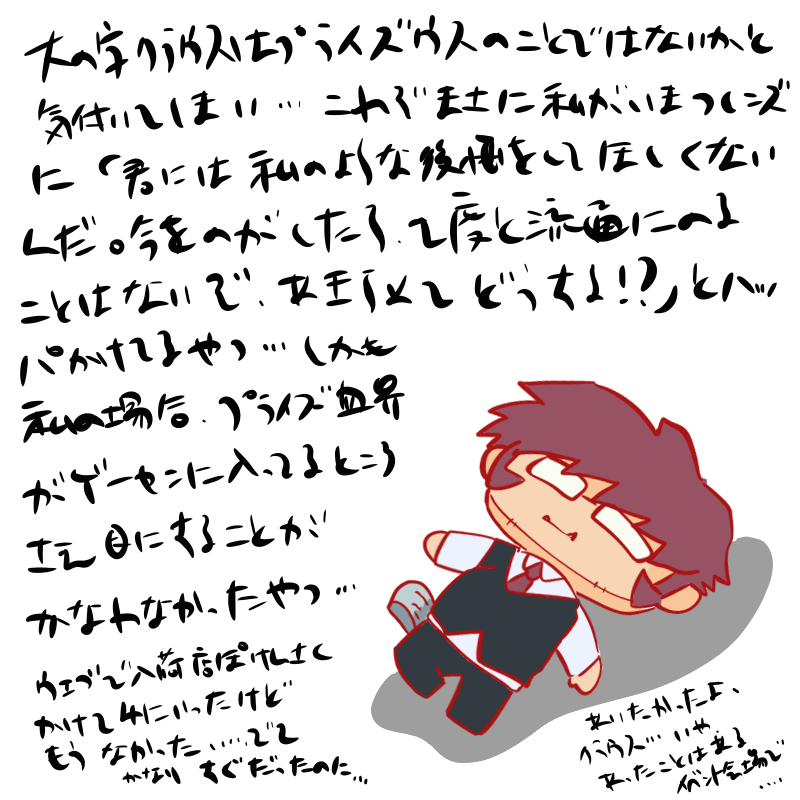 大の字クラウスはプライズクラウスのことではないかと
気付いてしまい… これぞまさに私がいまフレンズ
に「君には私のような後悔をしてほしくない
んだ。今をのがしたら、2度と流通にのる
ことはないで、あきらめてどうする!?」とハッ
パかけてるやつ… しかも
私の場合、プライズ血界
がゲーセンに入ってるところ
さえ目にすることが
かなわなかったやつ…
ウェブで入荷店ぽけんさく
かけて4にいったけど
もう なかった……でて
かなり すぐだったのに…
あいたかったよ、
クラウス… いや
あったことはある
イベント会場で
‥‥